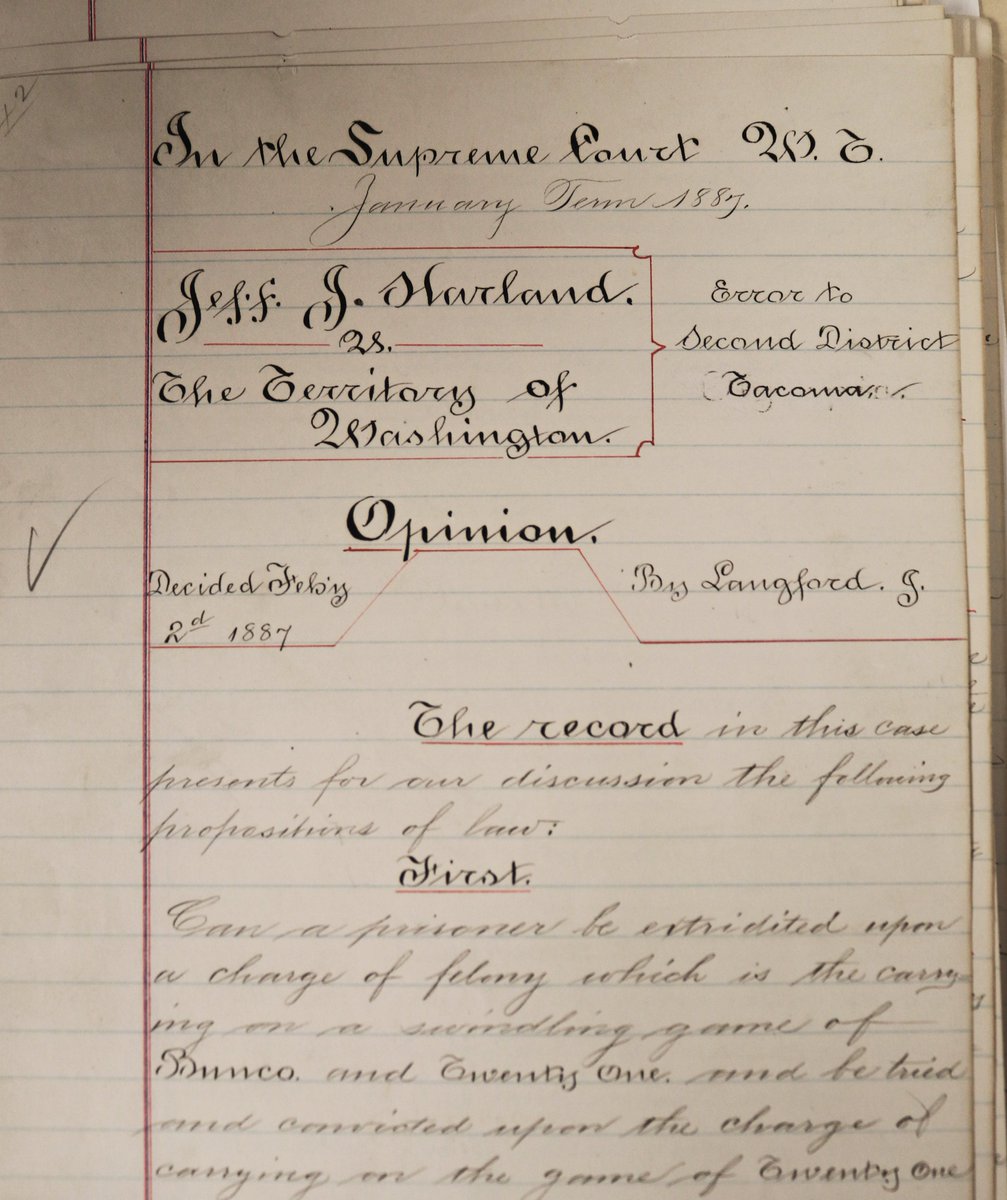 In the Supreme Court W. T.
January Term 1887.
Jeff. J. Harland.
vs.
The Territory of
Washington.
Error to
Second District
Tacoma.
Opinion.
Decided Feb'y
2d 1887
By Langford. J.
The record in this case
presents for our discussion the following
propositions of law:
First.
Can a prisoner be extridited upon
a charge of felony which is the carry-
ing on a swindling game of
Bunco. and Twenty One. and be tried
and convicted upon the charge of
carrying on the game of Twenty One